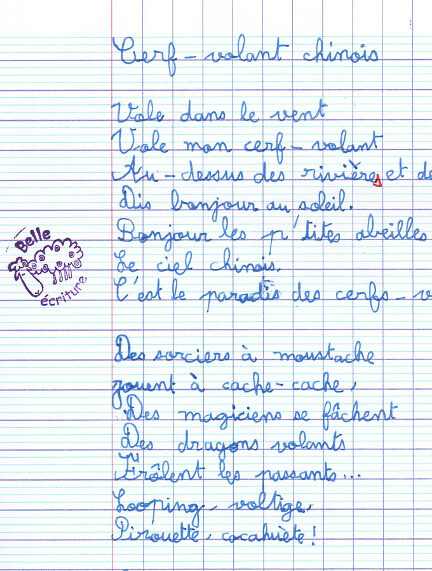 Cerf-volant chinois
Vole dans le vent
Vole mon cerf-volant
Au-dessus des rivières et de
Dis bonjour au soleil.
Bonjour les p'tites abeilles
Le ciel chinois.
C'est le paradis des cerfs-v
Belle
écriture
Des sorciers à moustache
jouent à cache-cache,
Des magiciens se fâchent
Des dragons volants
Frôlent les passants...
Looping, voltige,
Pirouette, cacahuète!